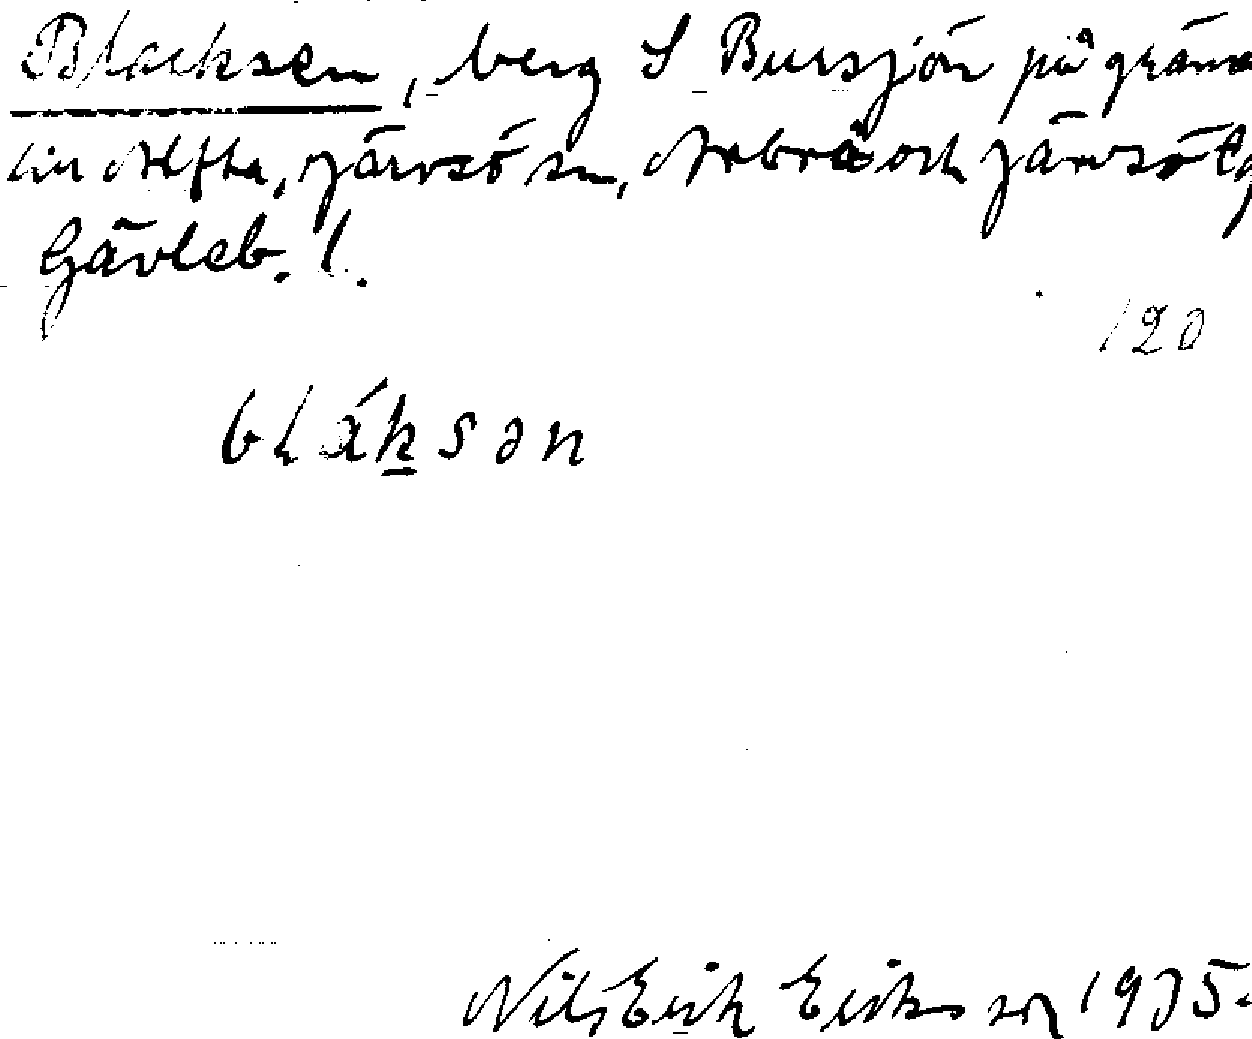 Blacksen, berg S Bursjön på gräns
till Alfta, Järvsö sn, Arbrå och Järvsö tg
Gävleb. l.
120
blák̠sən
Nils Erik Eriksson 1935.